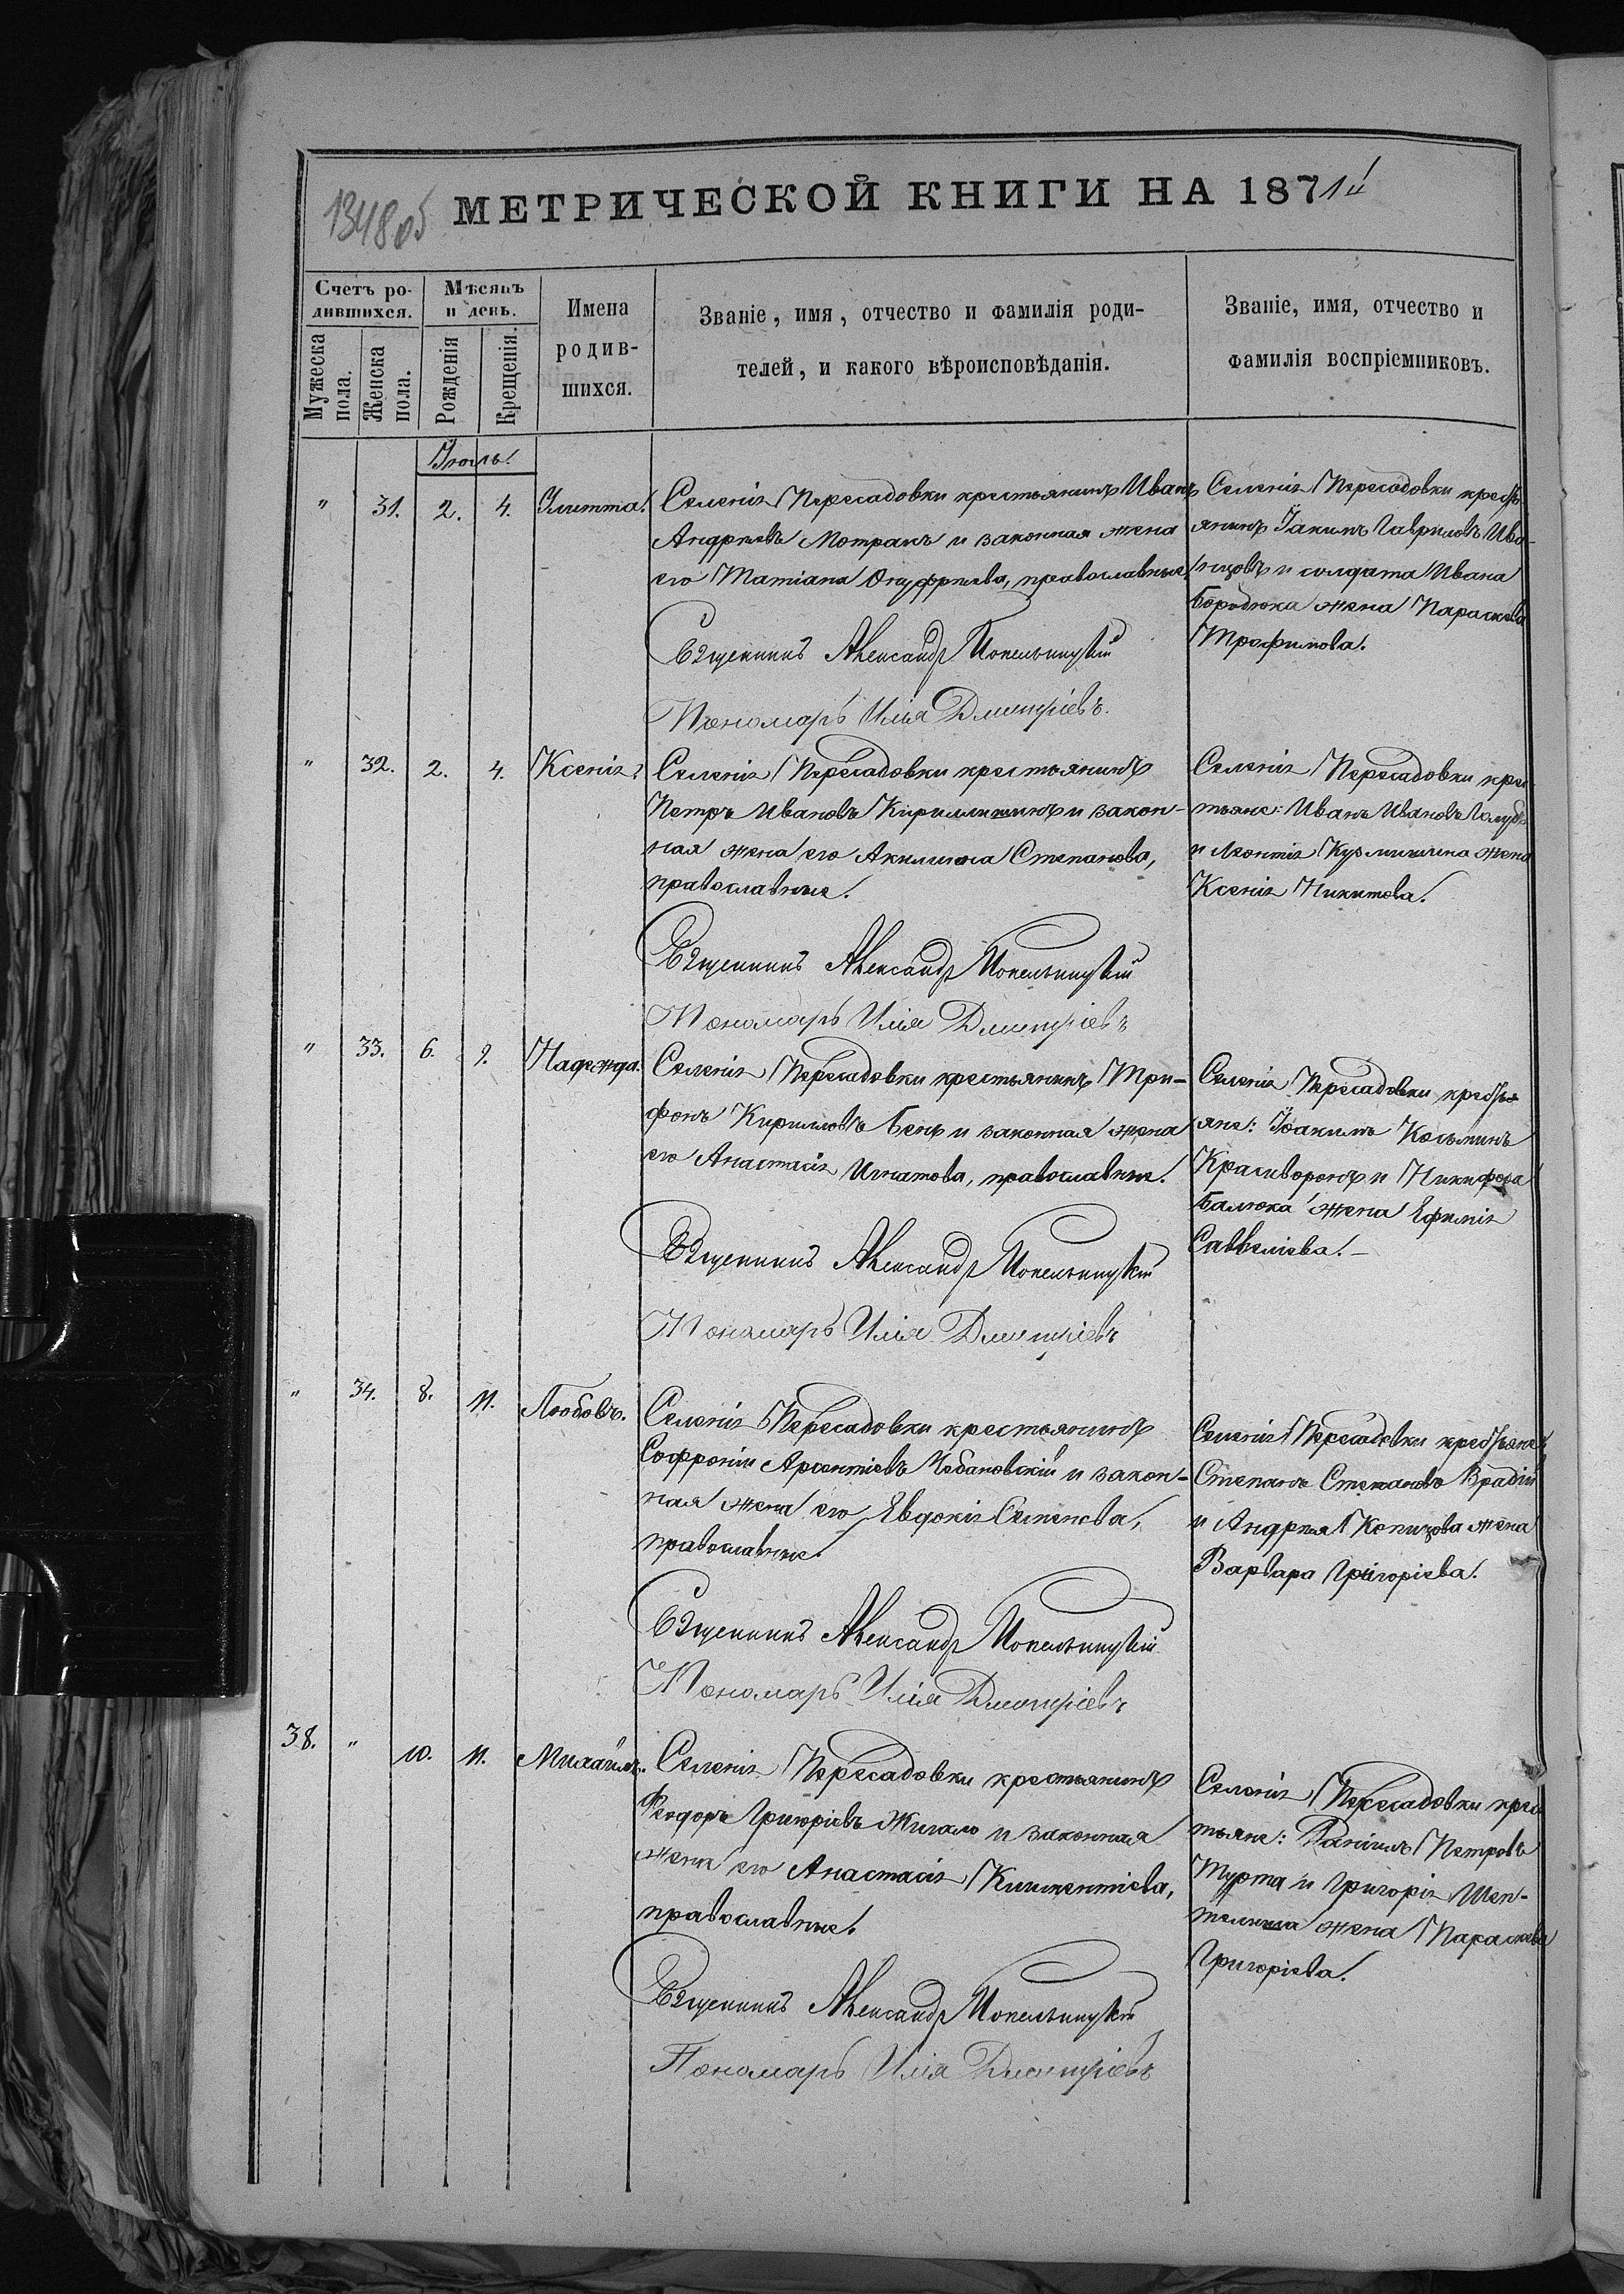 1348 об
МЕТРИЧЕСКОЙ КНИГИ НА 1871й
Счетъ ро-
дившихся.
Мужеска
пола.
Женска
пола.
Мѣсяцъ
и день.
Рожденія
Крещенія.
Имена
родив-
шихся.
Званіе, имя, отчество и фамилія роди-
телей, и какого вѣроисповѣданія.
Званіе, имя, отчество и
фамилія воспріемниковъ.
Іюль.
" 31. 2. 4. Улитта.
Селенія Пересадовки крестьянинъ Иванъ
Андреевъ Мотракъ и законная жена
его Татіана Онуфріева, православные.
Священникъ Александръ
Пономарь Илія Дмитріевъ.
Селенія Пересадовки кресть-
янинъ Іакимъ Гавриловъ Ива-
и солдата Ивана
Бородюка жена Параскева
Трофимова.
" 32. 2. 4. Ксенія.
Селенія Пересадовки крестьянинъ
Петръ Ивановъ и закон-
ная жена его Акилина Степанова,
православные.
Священникъ Александръ
Пономарь Илія Дмитріевъ
Селенія Пересадовки крес-
тьяне: Иванъ Ивановъ
и Леонтія жена
Ксенія Никитова.
" 33. 6. 9. Надежда.
Селенія Пересадовки крестьянинъ Три-
фонъ Кирилловъ Бенъ и законная жена
его Анастасія Игнатова, православные.
Священникъ Александръ
Пономарь Илія Дмитріевъ
Селенія Пересадовки кресть-
яне: Іоакимъ Косьминъ
Красиворонъ и Никифора
Балюка жена Ефимія
Савеліева.
" 34. 8. 11. Любовь.
Селенія Пересадовки крестьянинъ
Софроній Арсентіевъ Чебановскій и закон-
ная жена его Евдокія Семенова,
православные.
Священникъ Александръ
Пономарь Илія Дмитріевъ
Селенія Пересадовки крестьяне:
Степанъ Степановъ Врадій
и Андрея жена
Варвара Григоріева.
38. " 10. 11. Михаилъ.
Селенія Пересадовки крестьянинъ
Феодоръ Григоріевъ Жигало и законная
жена его Анастасія Климентіева,
православные.
Священникъ Александръ
Пономарь Илія Дмитріевъ
Селенія Пересадовки крес-
тьяне: Даніилъ Петровъ
Мурта и Григорія Шеп-
жена Параскева
Григоріева.